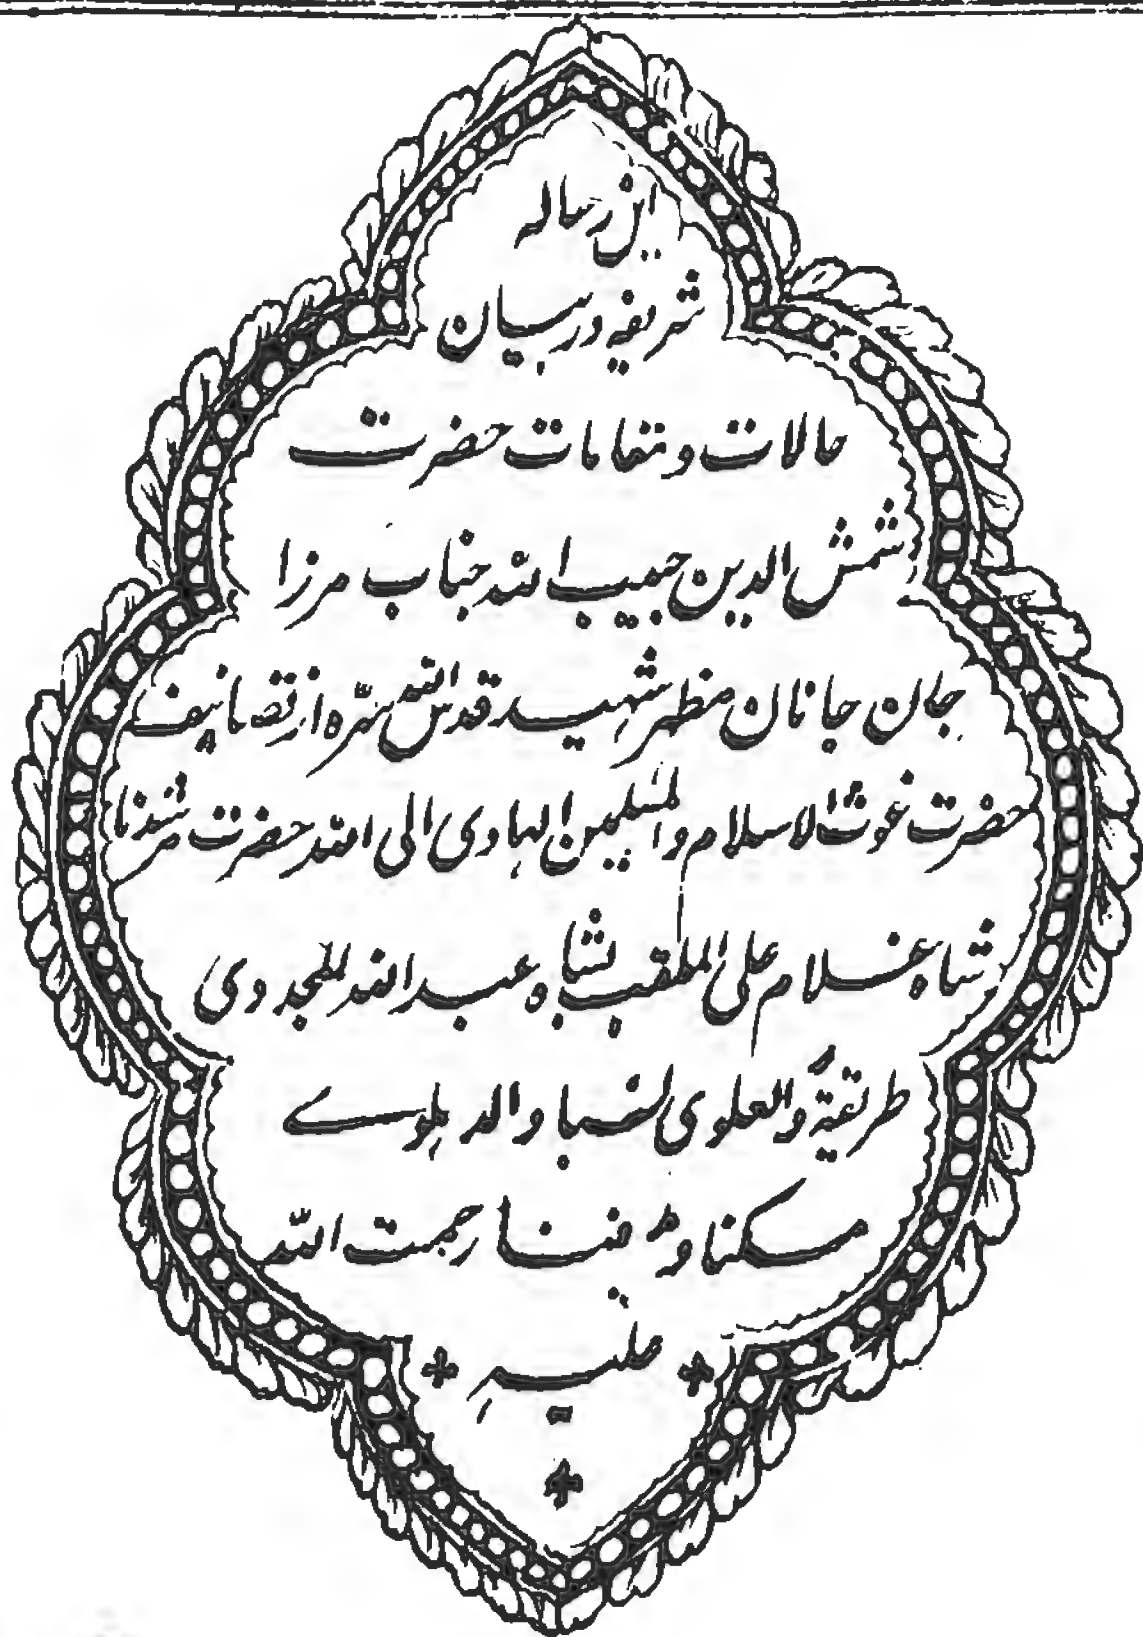 این رساله
شریفه در بیان
حالات و مقامات حضرت
شمس الدین حبیب الله جناب مرزا
جان جانان مظهر شهید قدس الله سره از تصانیف
حضرت غوث الاسلام والمسلمین الهادی الی الله حضرت مرشدنا
شاه غلام علی الملقب بشاه عبد الله المجددی
طریقةً والعلوی نسبا والدهلوے
مسکنا و مدفنا رحمت الله
علیه